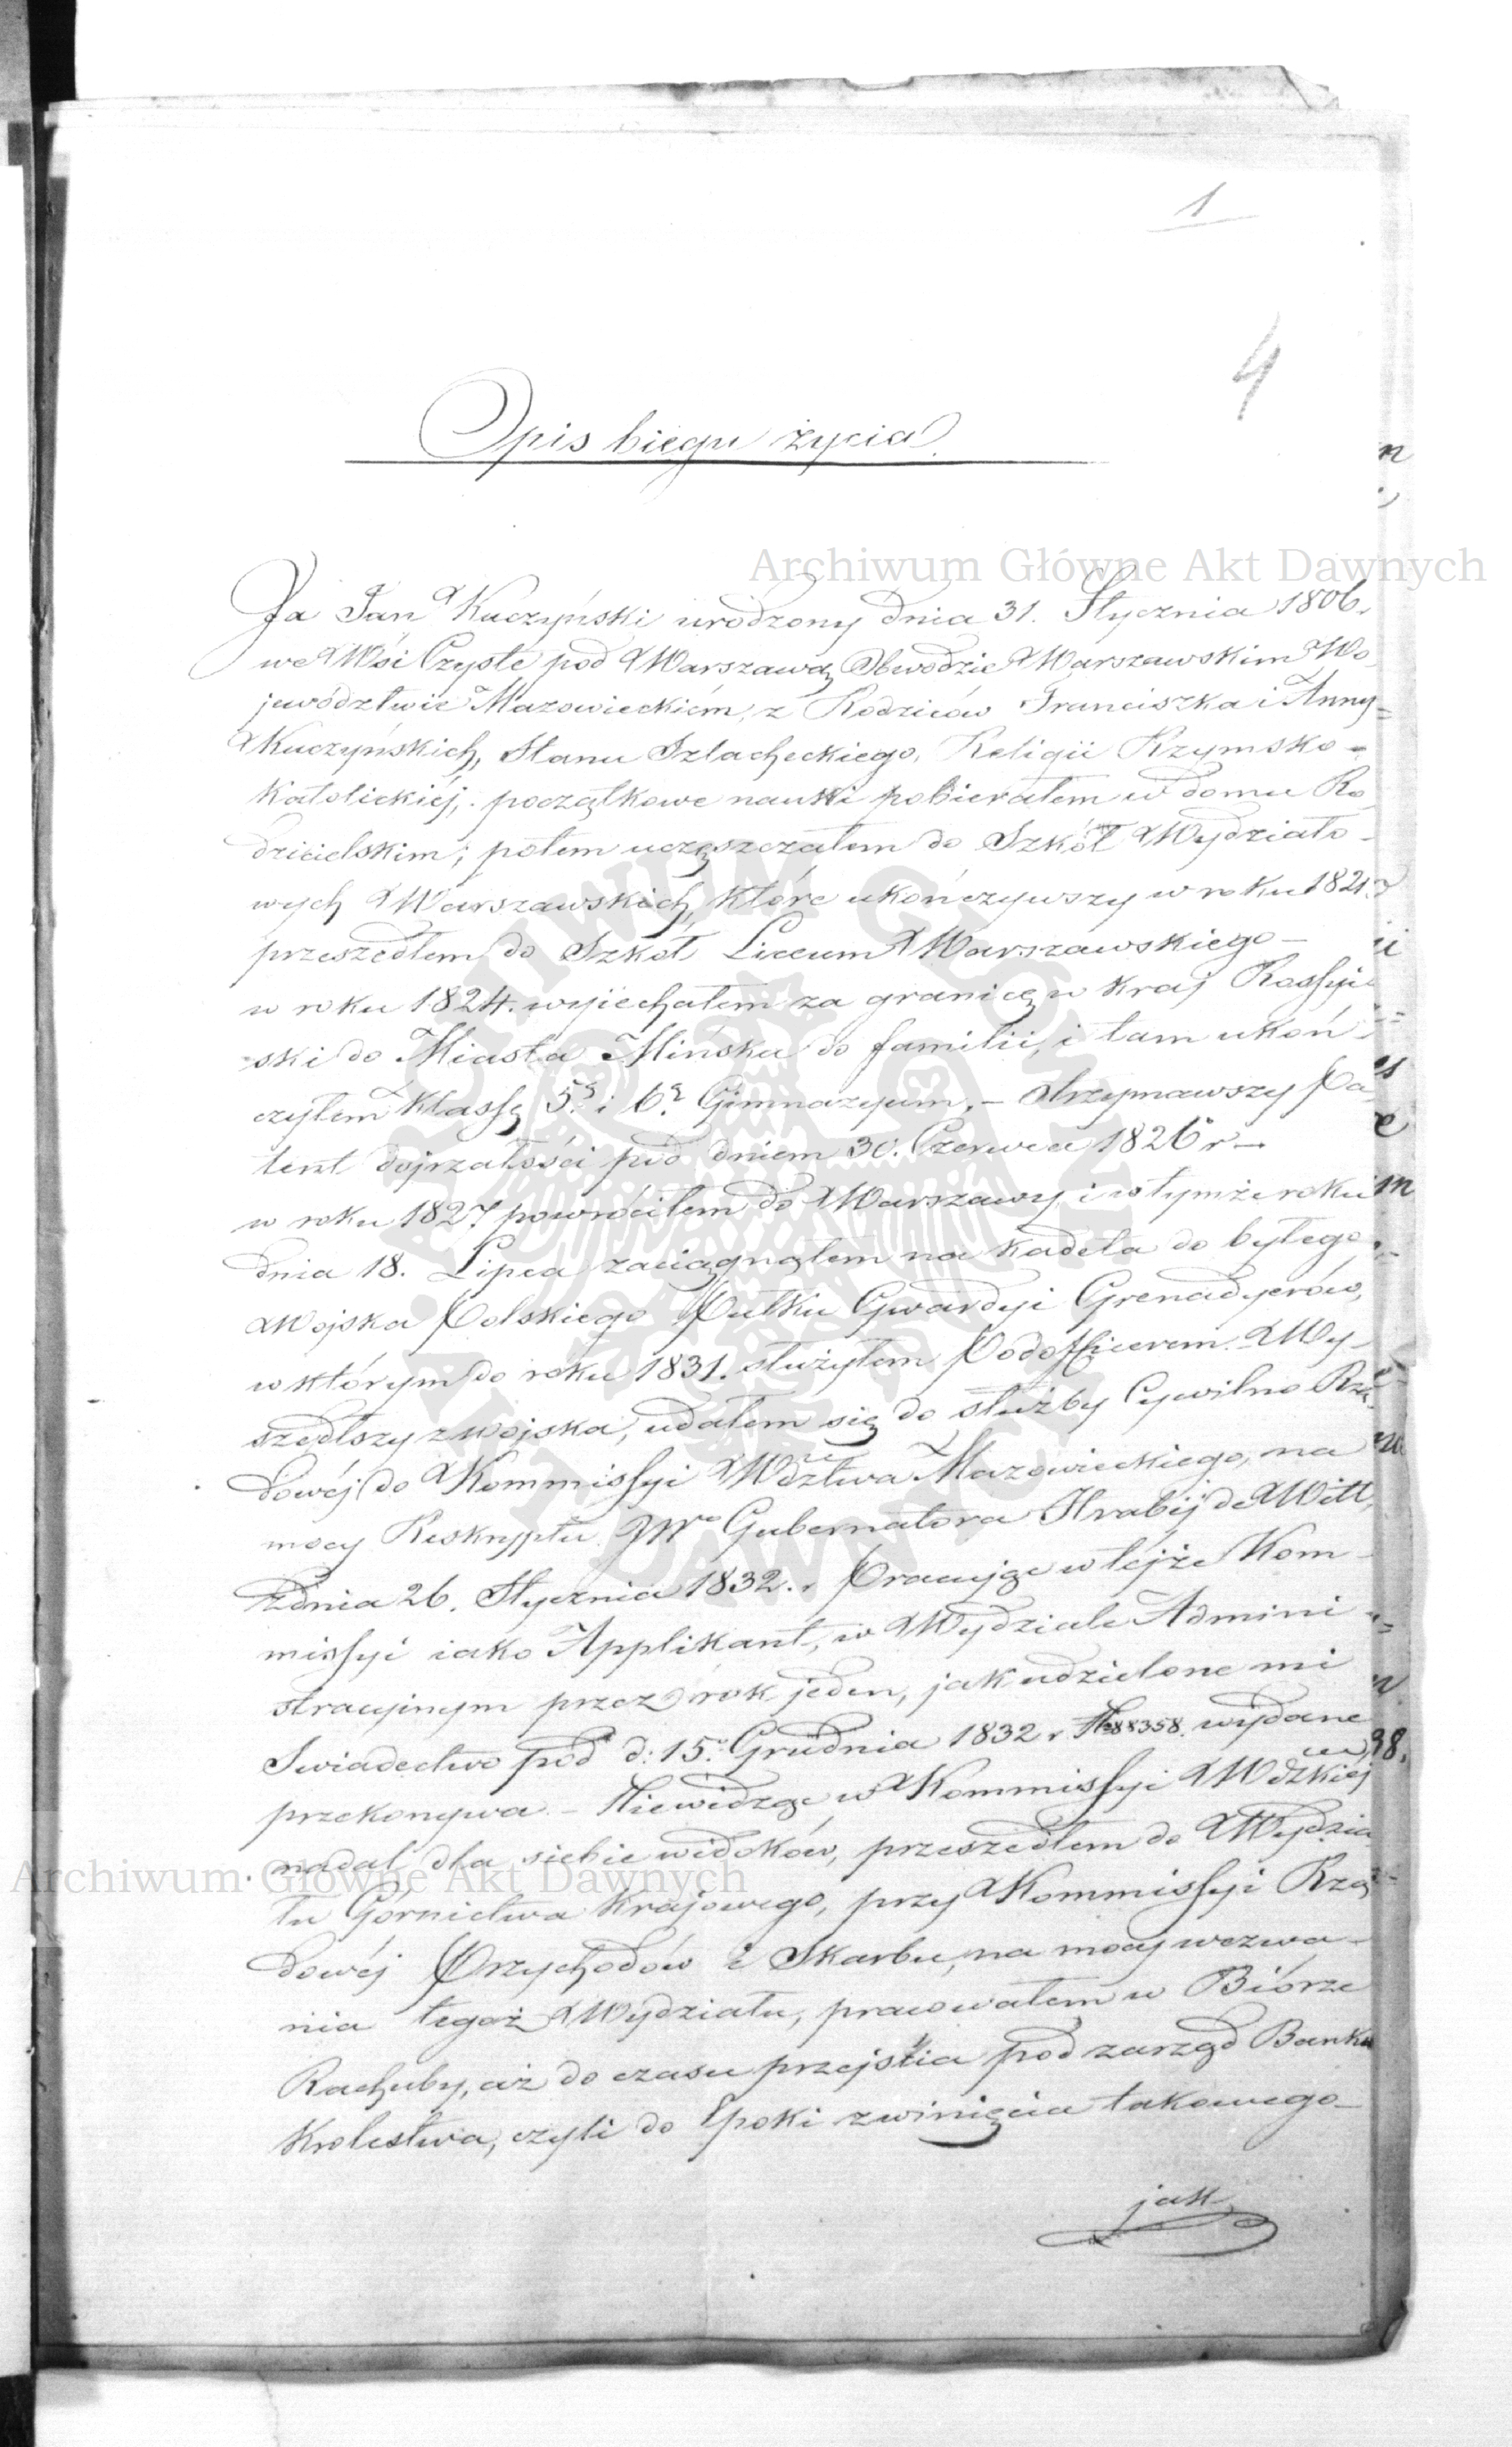 1
4
Opis biegu życia.
Archiwum Główne Akt Dawnych
Ja Jan Kuczyński urodzony dnia 31. Stycznia 1806.
we Wsi Czyste pod Warszawą Obwodzie Warszawskim Wo
jewództwie Mazowieckiém, z Rodziców Franciszka i Anny=
Kuczyńskich, Stanu Szlacheckiego, Religii Rzymsko=
Katolickiéj, początkowe nauki pobierałem w domu Ro
dzicielskim; potem uczęszczałem do Szkół Wydziało-
wych Warszawskich, które ukończywszy w roku 1821.
przeszedłem do Szkół Liceum Warszawskiego-
w roku 1824. wyiechałem za granicę w kraj Rossyi
ski do Miasta Mińska do familii, i tam ukoń-
czyłem Klassę 5ą i 6ą Gimnazyum.- Otrzymawszy Pa
tent dojrzałości pod dniem 30. Czerwca 1826 r-
w roku 1827 powróciłem do Warszawy i w tymże roku
dnia 18. Lipca zaciągnąłem na kadeta do byłego
Wojska Polskiego Pułku Gwardyi Grenadyerów,
w którym do roku 1831. służyłem Podofficerem.- Wy-
szedłszy z wojska, udałem się do służby Cywilno Rzą-
dowéj do Kommissyi Wdztwa Mazowieckiego, na
mocy Reskryptu JWo Gubernatora Hrabij de Witt,
z dnia 26. Stycznia 1832. r Pracując w tejże Kom-
missyi iako Applikant, w Wydziale Admini
stracyjnym przez rok jeden, jak udzielone mi
Swiadectwo pod d: 15. Grudnia 1832 r No 88358. wydane
przekonywa.- Niewidząc w Kommissyi Wdzkiej
nadal dla siebie widoków, przeszedłem do Wydzia
Archiwum Główne Akt Dawnych
łu Górnictwa Krajowego, przy Kommissyi Rzą
dowéj Przychodów i Skarbu, na mocy wezwa-
nia tegoż Wydziału, pracowałem w Biórze
Rachuby, aż do czasu przejścia pod zarząd Banku
Krolestwa, czyli do Epoki zwinięcia takowego-
jak